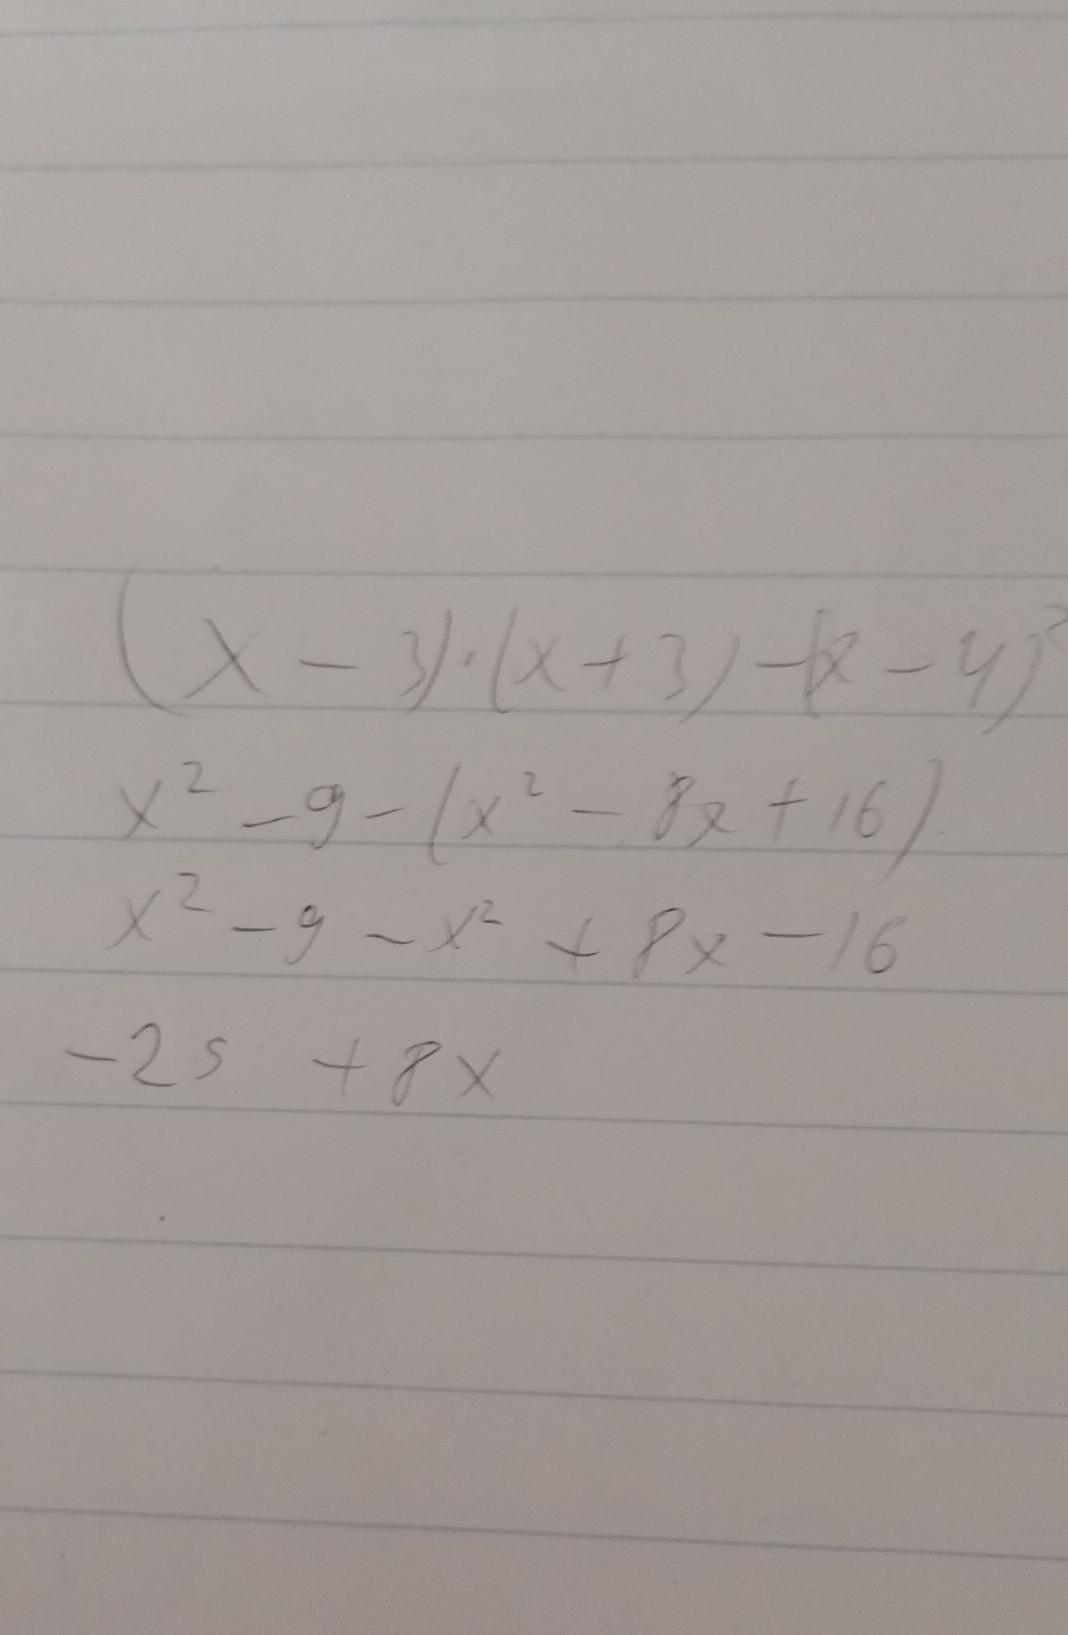 (x - 3)·(x + 3) - (x - 4)²
x² - 9 - (x² - 8x + 16)
x² - 9 - x² + 8x - 16
-25 + 8x